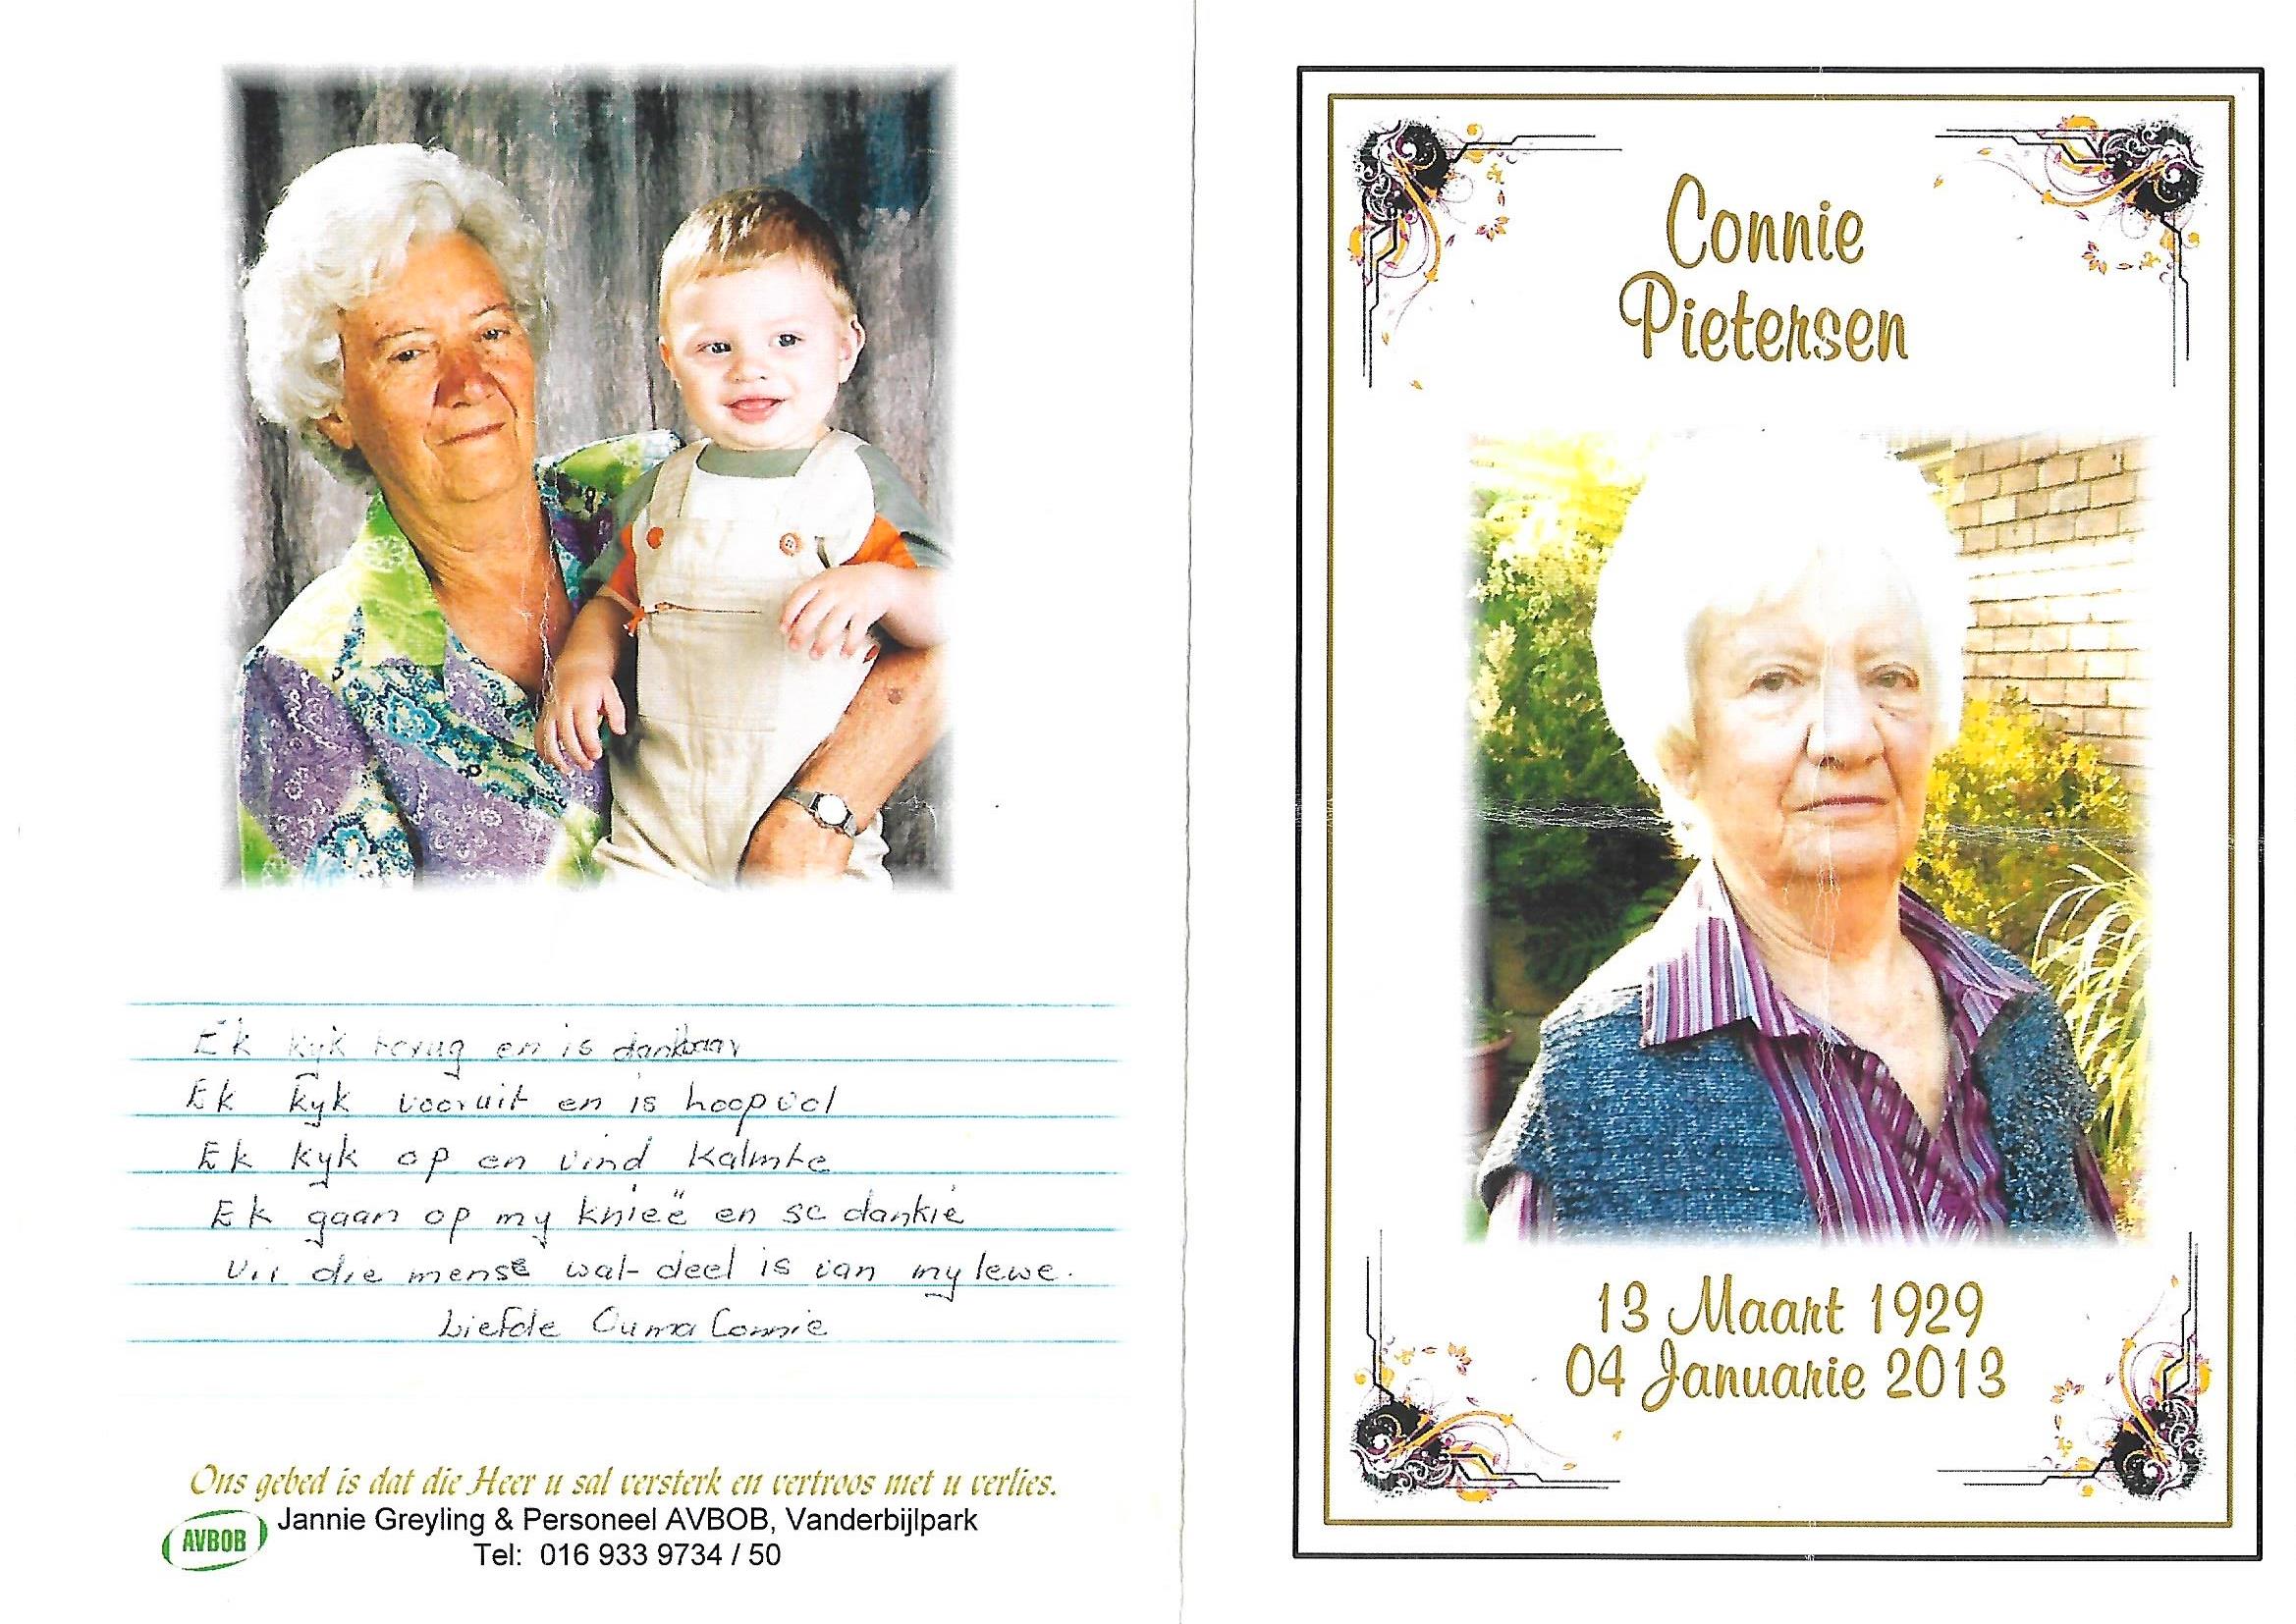 Ek kyk terug en is dankbaar
Ek kyk vooruit en is hoopvol
Ek kyk op en vind Kalmte
Ek gaan op my knieë en sê dankie
vir die mense wat deel is van my lewe.
Liefde Ouma Connie
Ons gebed is dat die Heer u sal versterk en vertroos met u verlies.
AVBOB
Jannie Greyling & Personeel AVBOB, Vanderbijlpark
Tel: 016 933 9734 / 50
Connie
Pietersen
13 Maart 1929
04 Januarie 2013